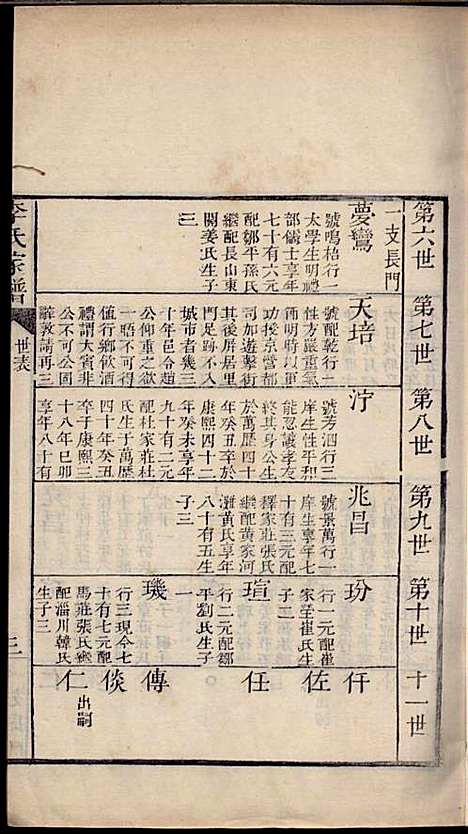 第六世
第七世
第八世
第九世
第十世
十一世
一支長門
夢鸞
號鳴梧行一
太學生明禮
部儒士享年
七十有六元
配鄒平孫氏
繼配長山東
關姜氏生子
三
天培
號配乾行一
性方嚴重氣
節明時以例
功授京營都
司加遊擊街
其後屏居里
門足跡不入
城市者幾三
十年邑令趙
公仰重之欲
一晤不可得
值行鄉飲酒
禮謂大賓非
公不可公固
辭敦請再三
泞
號芳泗行三
庠生性平和
能忍讓孝友
終其身公生
於萬歷四十
年癸丑卒於
康熙四十二
年癸未享年
九十有二元
配杜家莊杜
氏生于萬歷
四十年癸丑
卒于康熙三
十八年己卯
享年八十有
兆昌
號景萬行一
庠生享年七
十有三元配
釋家莊張氏
繼配黃家河
灘黃氏享年
八十有五生
子三
玢
行一元配崔
家塋崔氏生
子二
瑄
行二元配鄒
平劉氏生子
一
璣
行三現今七
十有七元配
馬莊張氏繼
配淄川韓氏
生子三
仟
佐
任
傳
倓
仁 出嗣
李氏家譜
世表
三